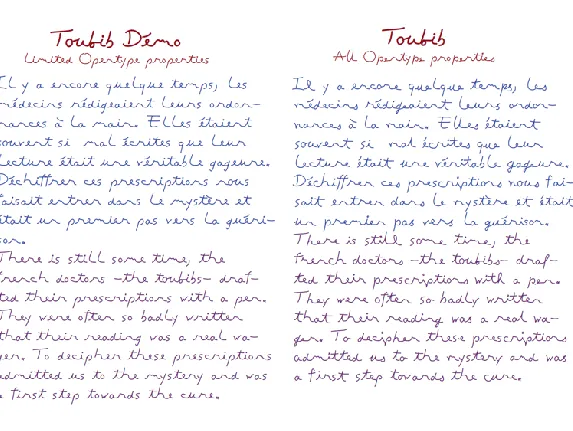 Toubib Demo
United Opentype properties
Il y a encore quelque temps, les
médecins rédigeaient leurs ordon-
nances à la main. Elles étaient
souvent si mal écrites que leur
lecture était une véritable gageure.
Déchiffrer ces prescriptions nous
faisait entrer dans le mystère et
était un premier pas vers la guéri-
son.
There is still some time, the
french doctors -the toubibs- draf-
ted their prescriptions with a pen.
They were often so badly written
that their reading was a real wa-
ger. To decipher these prescriptions
admitted us to the mystery and was
a first step towards the cure.
Toubib
All Opentype properties
Il y a encore quelque temps, les
médecins rédigeaient leurs ordon-
nances à la main. Elles étaient
souvent si mal écrites que leur
lecture était une véritable gageure.
Déchiffrer ces prescriptions nous fai-
sait entrer dans le mystère et était
un premier pas vers la guérison.
There is still some time, the
french doctors -the toubibs- draf-
ted their prescriptions with a pen.
They were often so badly written
that their reading was a real wa-
ger. To decipher these prescriptions
admitted us to the mystery and was
a first step towards the cure.